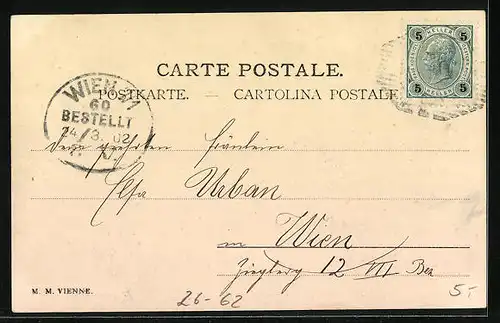 5 HELLER 5
5 HELLER 5
CARTE POSTALE.
POSTKARTE. — CARTOLINA POSTALE.
WIEN 7/1
60
BESTELLT
24/3. 02
Dem geehrten Fräulein
Elsa Urban
in Wien
Ziegler 12 VII Bez
M. M. VIENNE.
26-62
5-